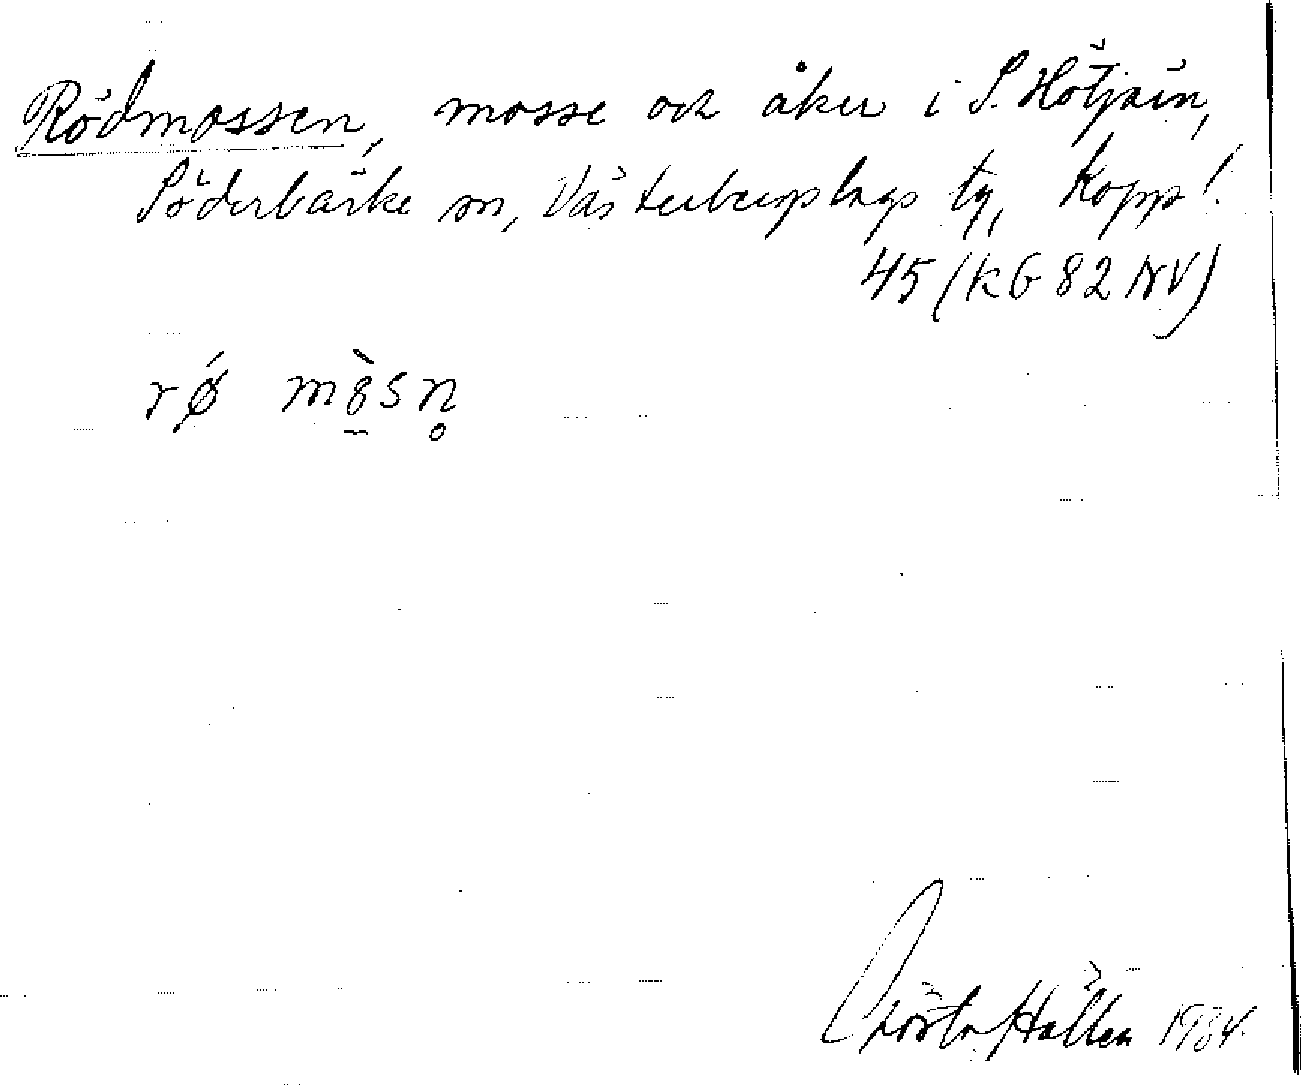 Rödmossen, mosse och åker i S. Hötjärn,
Söderbärke sn, Västerbergslags tg, Kopp.
45 (KG 82 NV)
rǿ mò̱sn̥
Gösta Hallén 1984